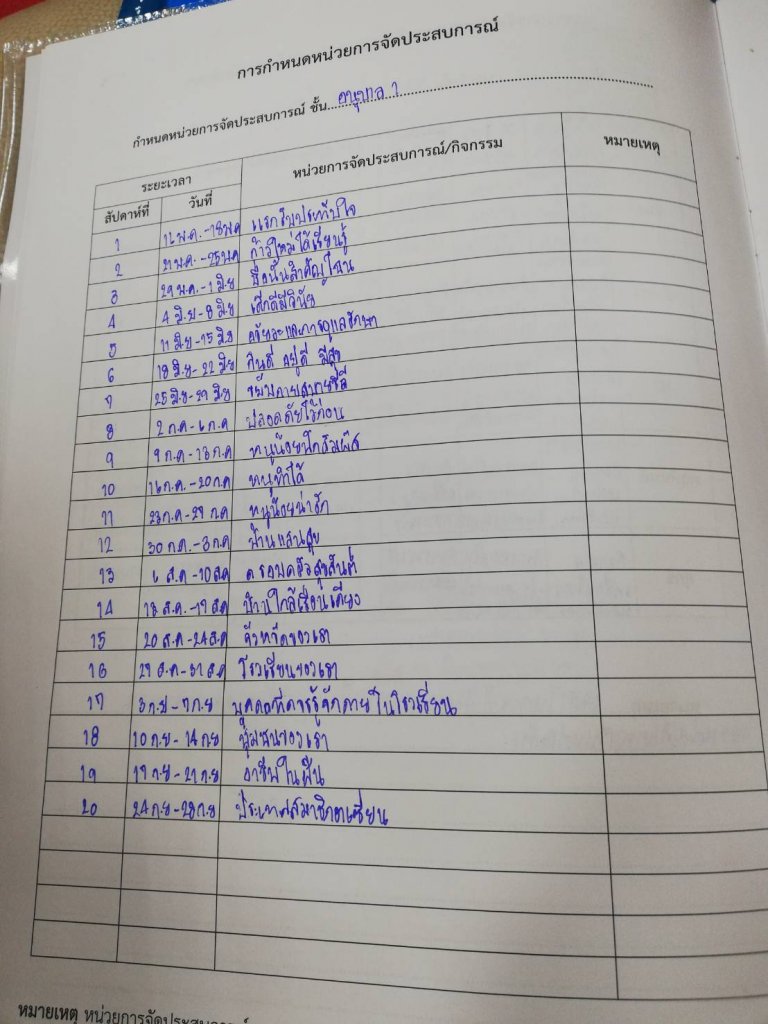 การกำหนดหน่วยการจัดประสบการณ์
กำหนดหน่วยการจัดประสบการณ์ ชั้น อนุบาล 1
ระยะเวลา หน่วยการจัดประสบการณ์/กิจกรรม หมายเหตุ
สัปดาห์ที่ วันที่
1 พ.ค.-18 พ.ค แรกรับประทับใจ
2 21 พ.ค.-25 พ.ค ก้าวใหม่ได้เรียนรู้
3 29 พ.ค.-1 มิย ชื่อนั้นสำคัญไฉน
4 4 มิ.ย-8 มิย เด็กดีมีวินัย
5 11 มิย-15 มิย อวัยวะและการดูแลรักษา
6 18 มิย-22 มิย กินดี อยู่ดี มีสุข
7 25 มิย-29 มิย ขยับกายสบายชีวี
8 2 ก.ค-6 ก.ค ปลอดภัยไว้ก่อน
9 9 ก.ค-13 ก.ค หนูน้อยนักสัมผัส
10 16 ก.ค.-20 ก.ค หนูทำได้
11 23 ก.ค-27 ก.ค หนูน้อยน่ารัก
12 30 ก.ค.-3 ก.ค บ้านแสนสุข
13 6 ส.ค-10 ส.ค ครอบครัวสุขสันต์
14 13 ส.ค.-17 ส.ค บ้านใกล้เรือนเคียง
15 20 ส.ค-24 ส.ค จังหวัดของเรา
16 ส.ค-31 ส.ค โรงเรียนของเรา
17 3 ก.ย-7 ก.ย บุคคลที่ควรรู้จักภายในโรงเรียน
18 10 ก.ย-14 ก.ย ชุมชนของเรา
19 17 ก.ย-21 ก.ย อาชีพในฝัน
20 24 ก.ย-28 ก.ย ประเทศสมาชิกอาเซียน
หมายเหตุ หน่วยการจัดประสบการณ์